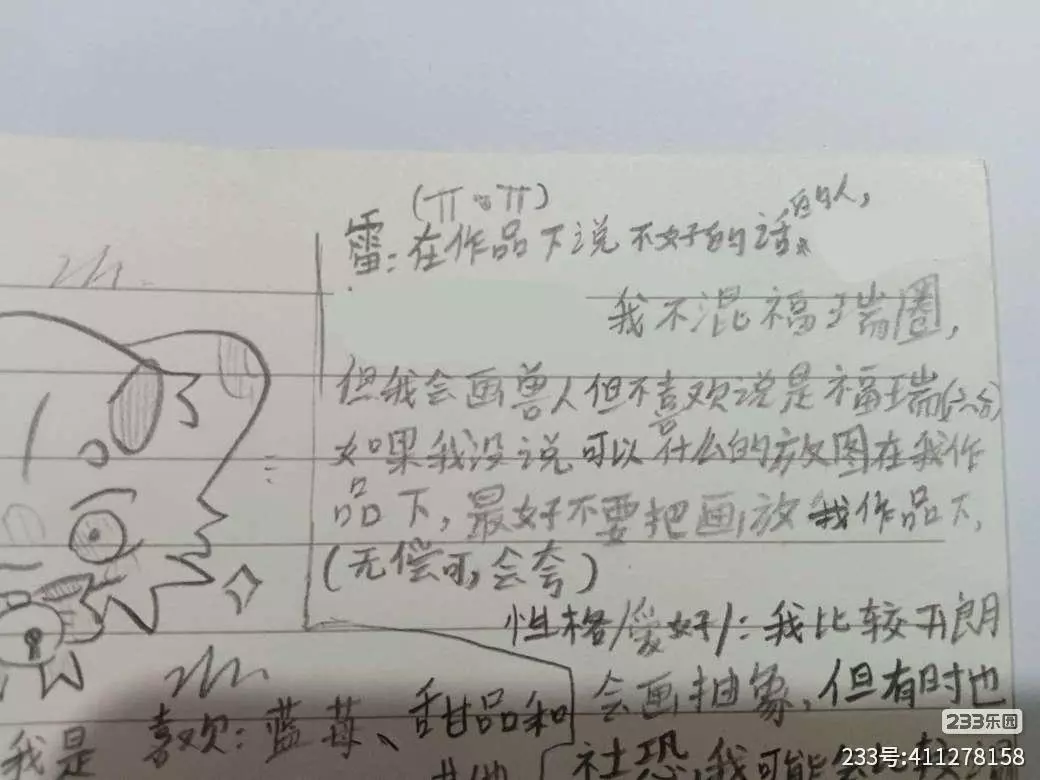 (ㅠ ㅠ)
雷:在作品下说不好的话的人,
我不混福瑞圈,
但我会画兽人但不喜欢说是福瑞
如果我没说可以什么的放图在我作
品下,最好不要把画放我作品下,
(无偿可,会夸)
性格/爱好/:我比较开朗
会画抽象,但有时也
喜欢:蓝莓、甜品和
我是
社恐,我可能会
233乐园
233号:411278158